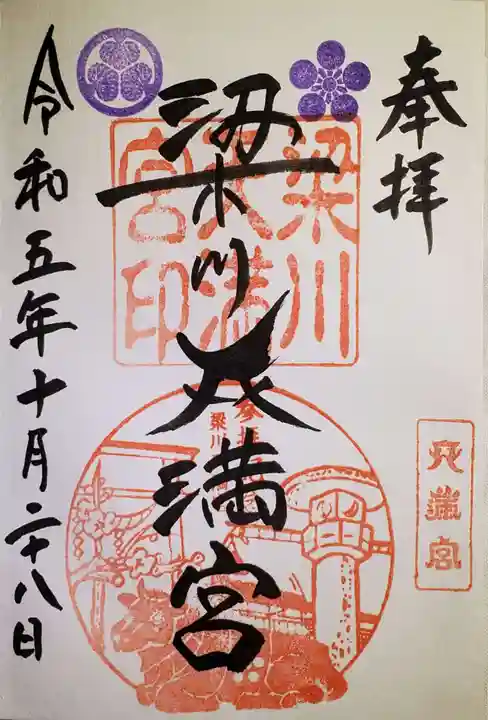 奉拝
梁川天満宮
令和五年十月二十八日
梁川
天満
宮印
天満宮
梁川